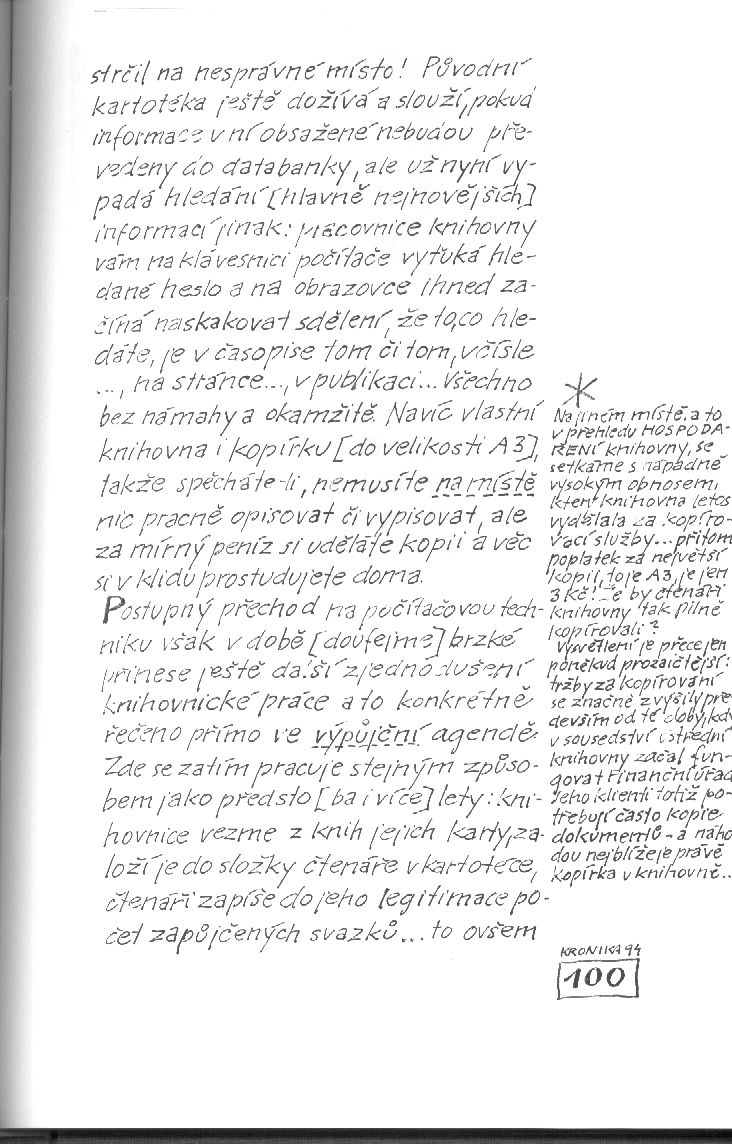 strčil na nesprávné místo! Původní
kartotéka ještě dožívá a slouží, pokud
informace v ní obsažené nebudou pře-
vedeny do databanky, ale už nyní vy-
padá hledání [hlavně nejnovějších]
informací jinak: pracovnice knihovny
vám na klávesnici počítače vyťuká hle-
dané heslo a na obrazovce ihned za-
číná naskakovat sdělení, že to, co hle-
dáte, je v časopise tom či tom, v čísle
..., na stránce..., v publikaci... Všechno
bez námahy a okamžitě. Navíc vlastní
knihovna i kopírku [do velikosti A3],
takže spěcháte-li, nemusíte na místě
nic pracně opisovat či vypisovat, ale
za mírný peníz si uděláte kopii a věc
si v klidu prostudujete doma.
Postupný přechod na počítačovou tech-
niku však v době [doufejme] brzké
přinese ještě další zjednodušení
knihovnické práce a to konkrétně
řečeno přímo ve výpůjční agendě.
Zde se zatím pracuje stejným způso-
bem jako před sto [ba i více] lety: kni-
hovnice vezme z knih jejich karty, za-
loží je do složky čtenáře v kartotéce,
čtenáři zapíše do jeho legitimace po-
čet zapůjčených svazků... to ovšem
*
Na jiném místě, a to
v přehledu HOSPODA-
ŘENÍ knihovny, se
setkáme s nápadně
vysokým obnosem,
který knihovna letos
vydělala za kopíro-
vací služby... přitom
poplatek za největší
kopii, to je A3, je jen
3 Kč! Že by čtenáři
knihovny tak pilně
kopírovali?
Vysvětlení je přece jen
poněkud prozaičtější:
tržby za kopírování
se značně zvýšily pře-
devším od té doby, kdy
v sousedství ústřední
knihovny začal fun-
govat Finanční úřad
Jeho klienti totiž po-
třebují často kopie
dokumentů - a náho
dou nejblíže je právě
kopírka v knihovně...
KRONIKA 94
100